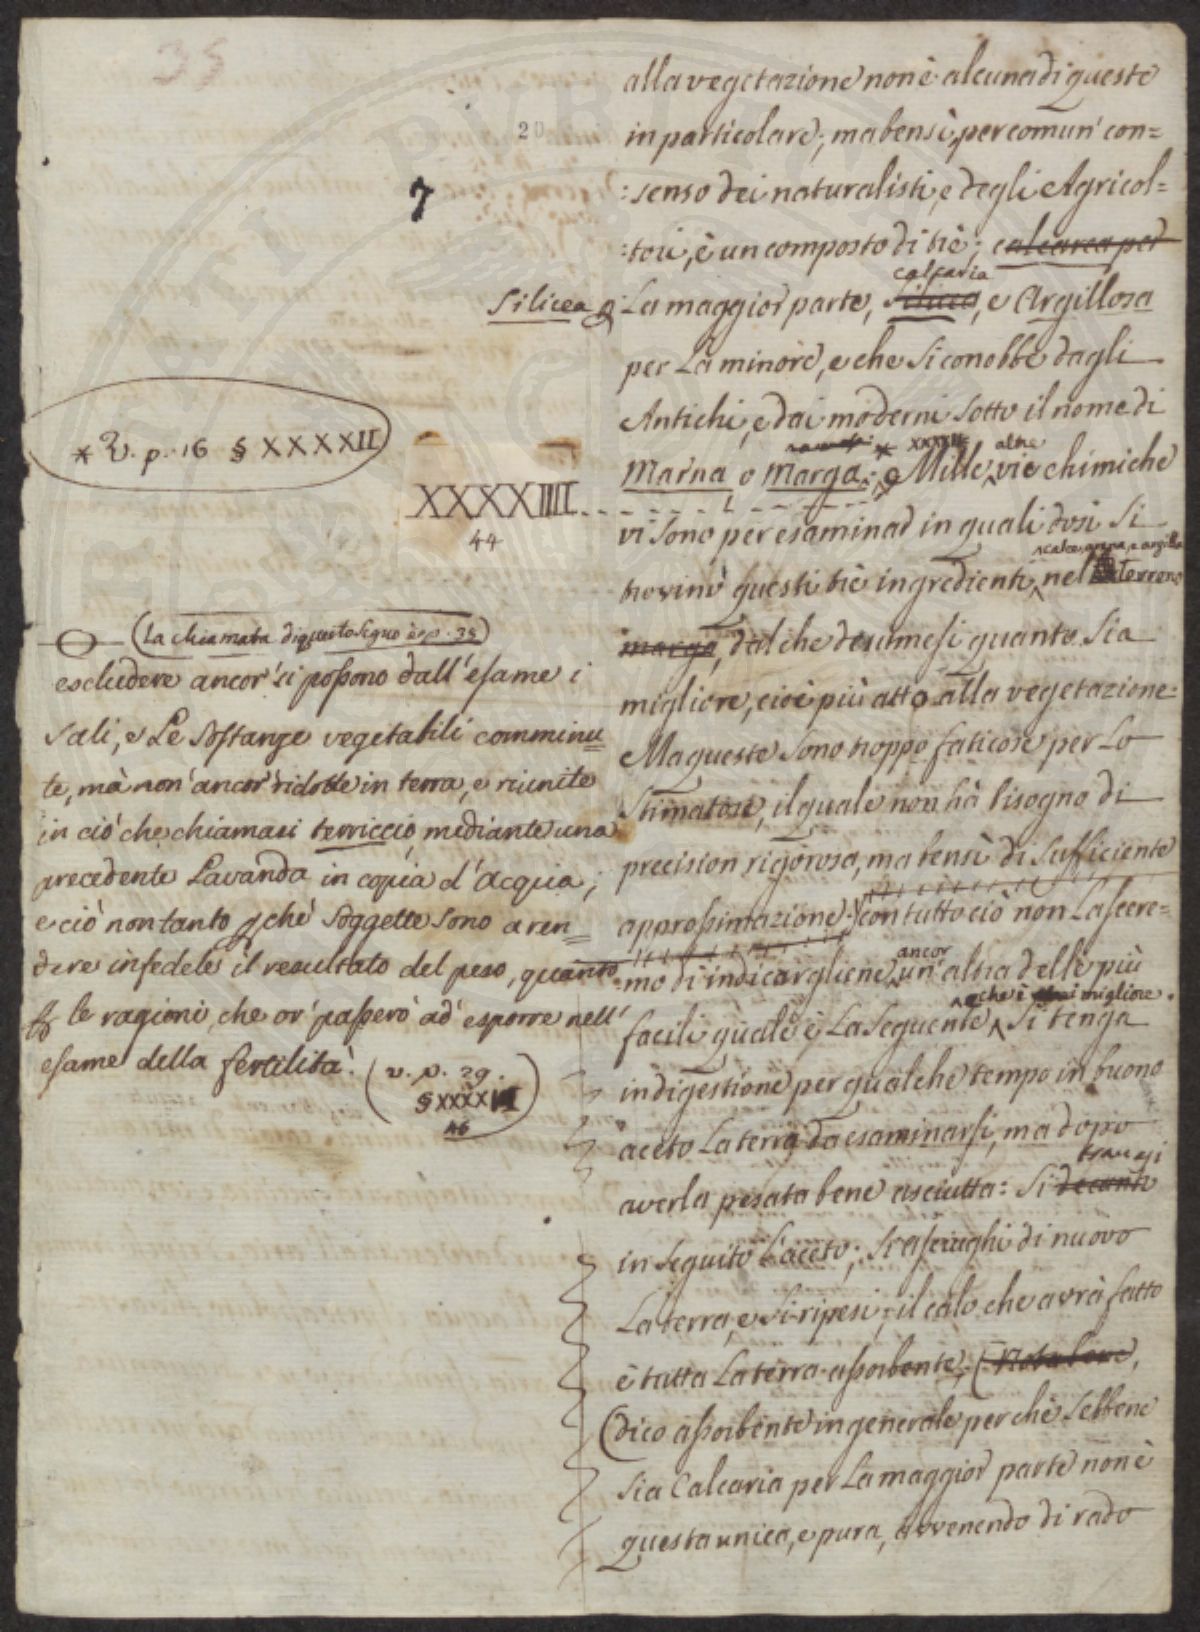 35
20
7
alla vegetazione non è alcuna di queste
in particolare; ma bensì, per comun' con=
:senso dei naturalisti, e degli Agricol=
:tori, è un composto di trè; calcarea per
Silicea La maggior parte, calcaria silicea, e Argillosa
per La minore, e che si conobbe dagli
Antichi, e dai moderni sotto il nome di
Marna o Marga; * XXXXII Mille altre vie chimiche
vi sono per esaminar in quali dosi si
trovino questi trè ingredienti, calce, arena, e argilla nel terreno
marga, dal che desumesi quanto sia
migliore, cioè più atto alla vegetazione:
Ma queste sono troppo faticose per Lo
Stimatore, il quale non hà bisogno di
precision rigorosa, ma bensì di sufficiente
approssimazione; con tutto ciò non Lascere=
:mo di indicargliene ancor un' altra delle più
facili quale è La seguente, che è migliore. Si tenga
in digestione per qualche tempo in buono
aceto La terra da esaminarsi, ma dopo
averla pesata bene asciutta: si decanti travasi
in seguito l'aceto; si asciughi di nuovo
La terra, e si ripesi; il calo che avrà fatto
è tutta La terra assorbente; (Nota bene,
(dico assorbente in generale perchè sebbene
sia Calcaria per La maggior parte non è
questa unica, e pura, avvenendo di rado
* V. p. 16 § XXXXII
XXXXIIII
44
(La chiamata di questo segno è a p. 35)
escludere ancor' si possono dall' esame i
sali, e Le sostanze vegetabili comminu=
te, mà non' ancor' ridotte in terra, e riunite
in ciò che chiamasi terriccio, mediante una
precedente Lavanda in copia d' acqua;
e ciò non tanto pchè soggette sono a ren=
dere infedele il resultato del peso, quanto
p le ragioni, che or' passerò ad' esporre nell'
esame della fertilità. (v. p. 29.
§ XXXXVI
46